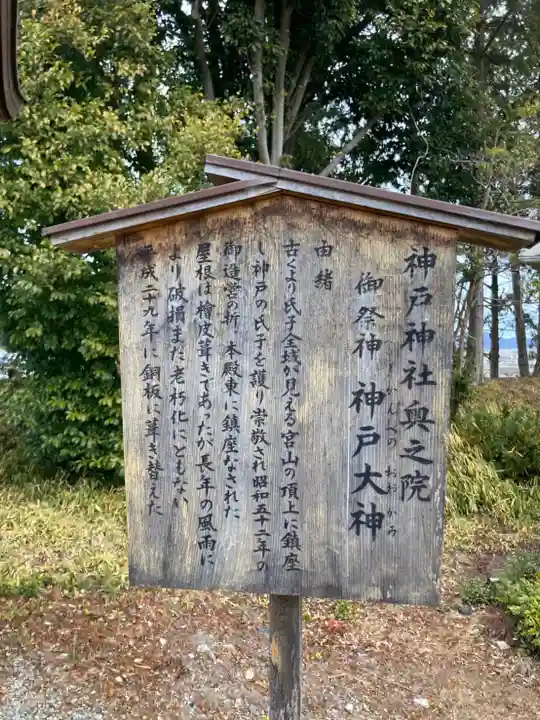 神戸神社奥之院
御祭神 神戸大神
かんべのおおかみ
由緒
古くより氏子全域が見える宮山の頂上に鎮座
し神戸の氏子を護り崇敬され昭和五十二年の
御造営の折、本殿東に鎮座なされた
屋根は檜皮葺きであったが長年の風雨に
より破損また老朽化にともない
平成二十九年に銅板に葺き替えた